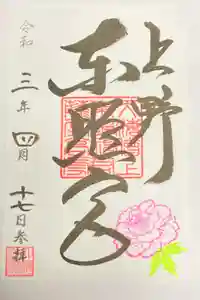 上野
東照宮
令和三年四月十七日参拝